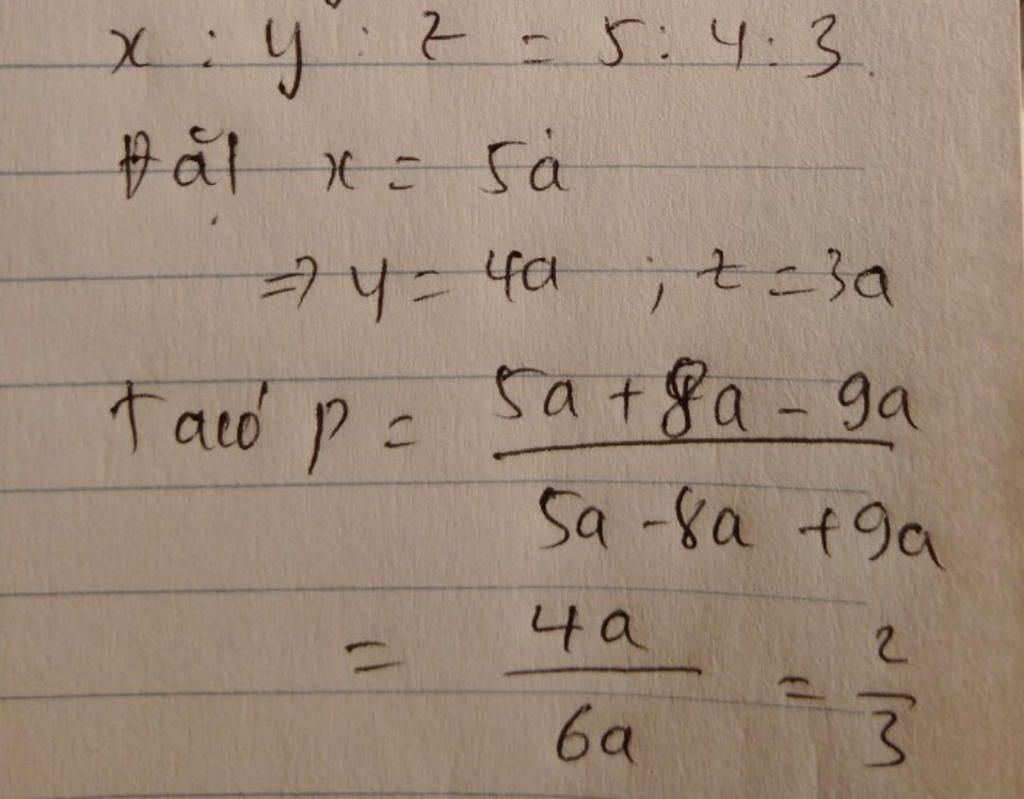 x : y : z = 5 : 4 : 3
Đặt x = 5a
⇒ y = 4a ; z = 3a
Ta có P = (5a + 8a - 9a) / (5a - 8a + 9a)
= 4a / 6a = 2 / 3